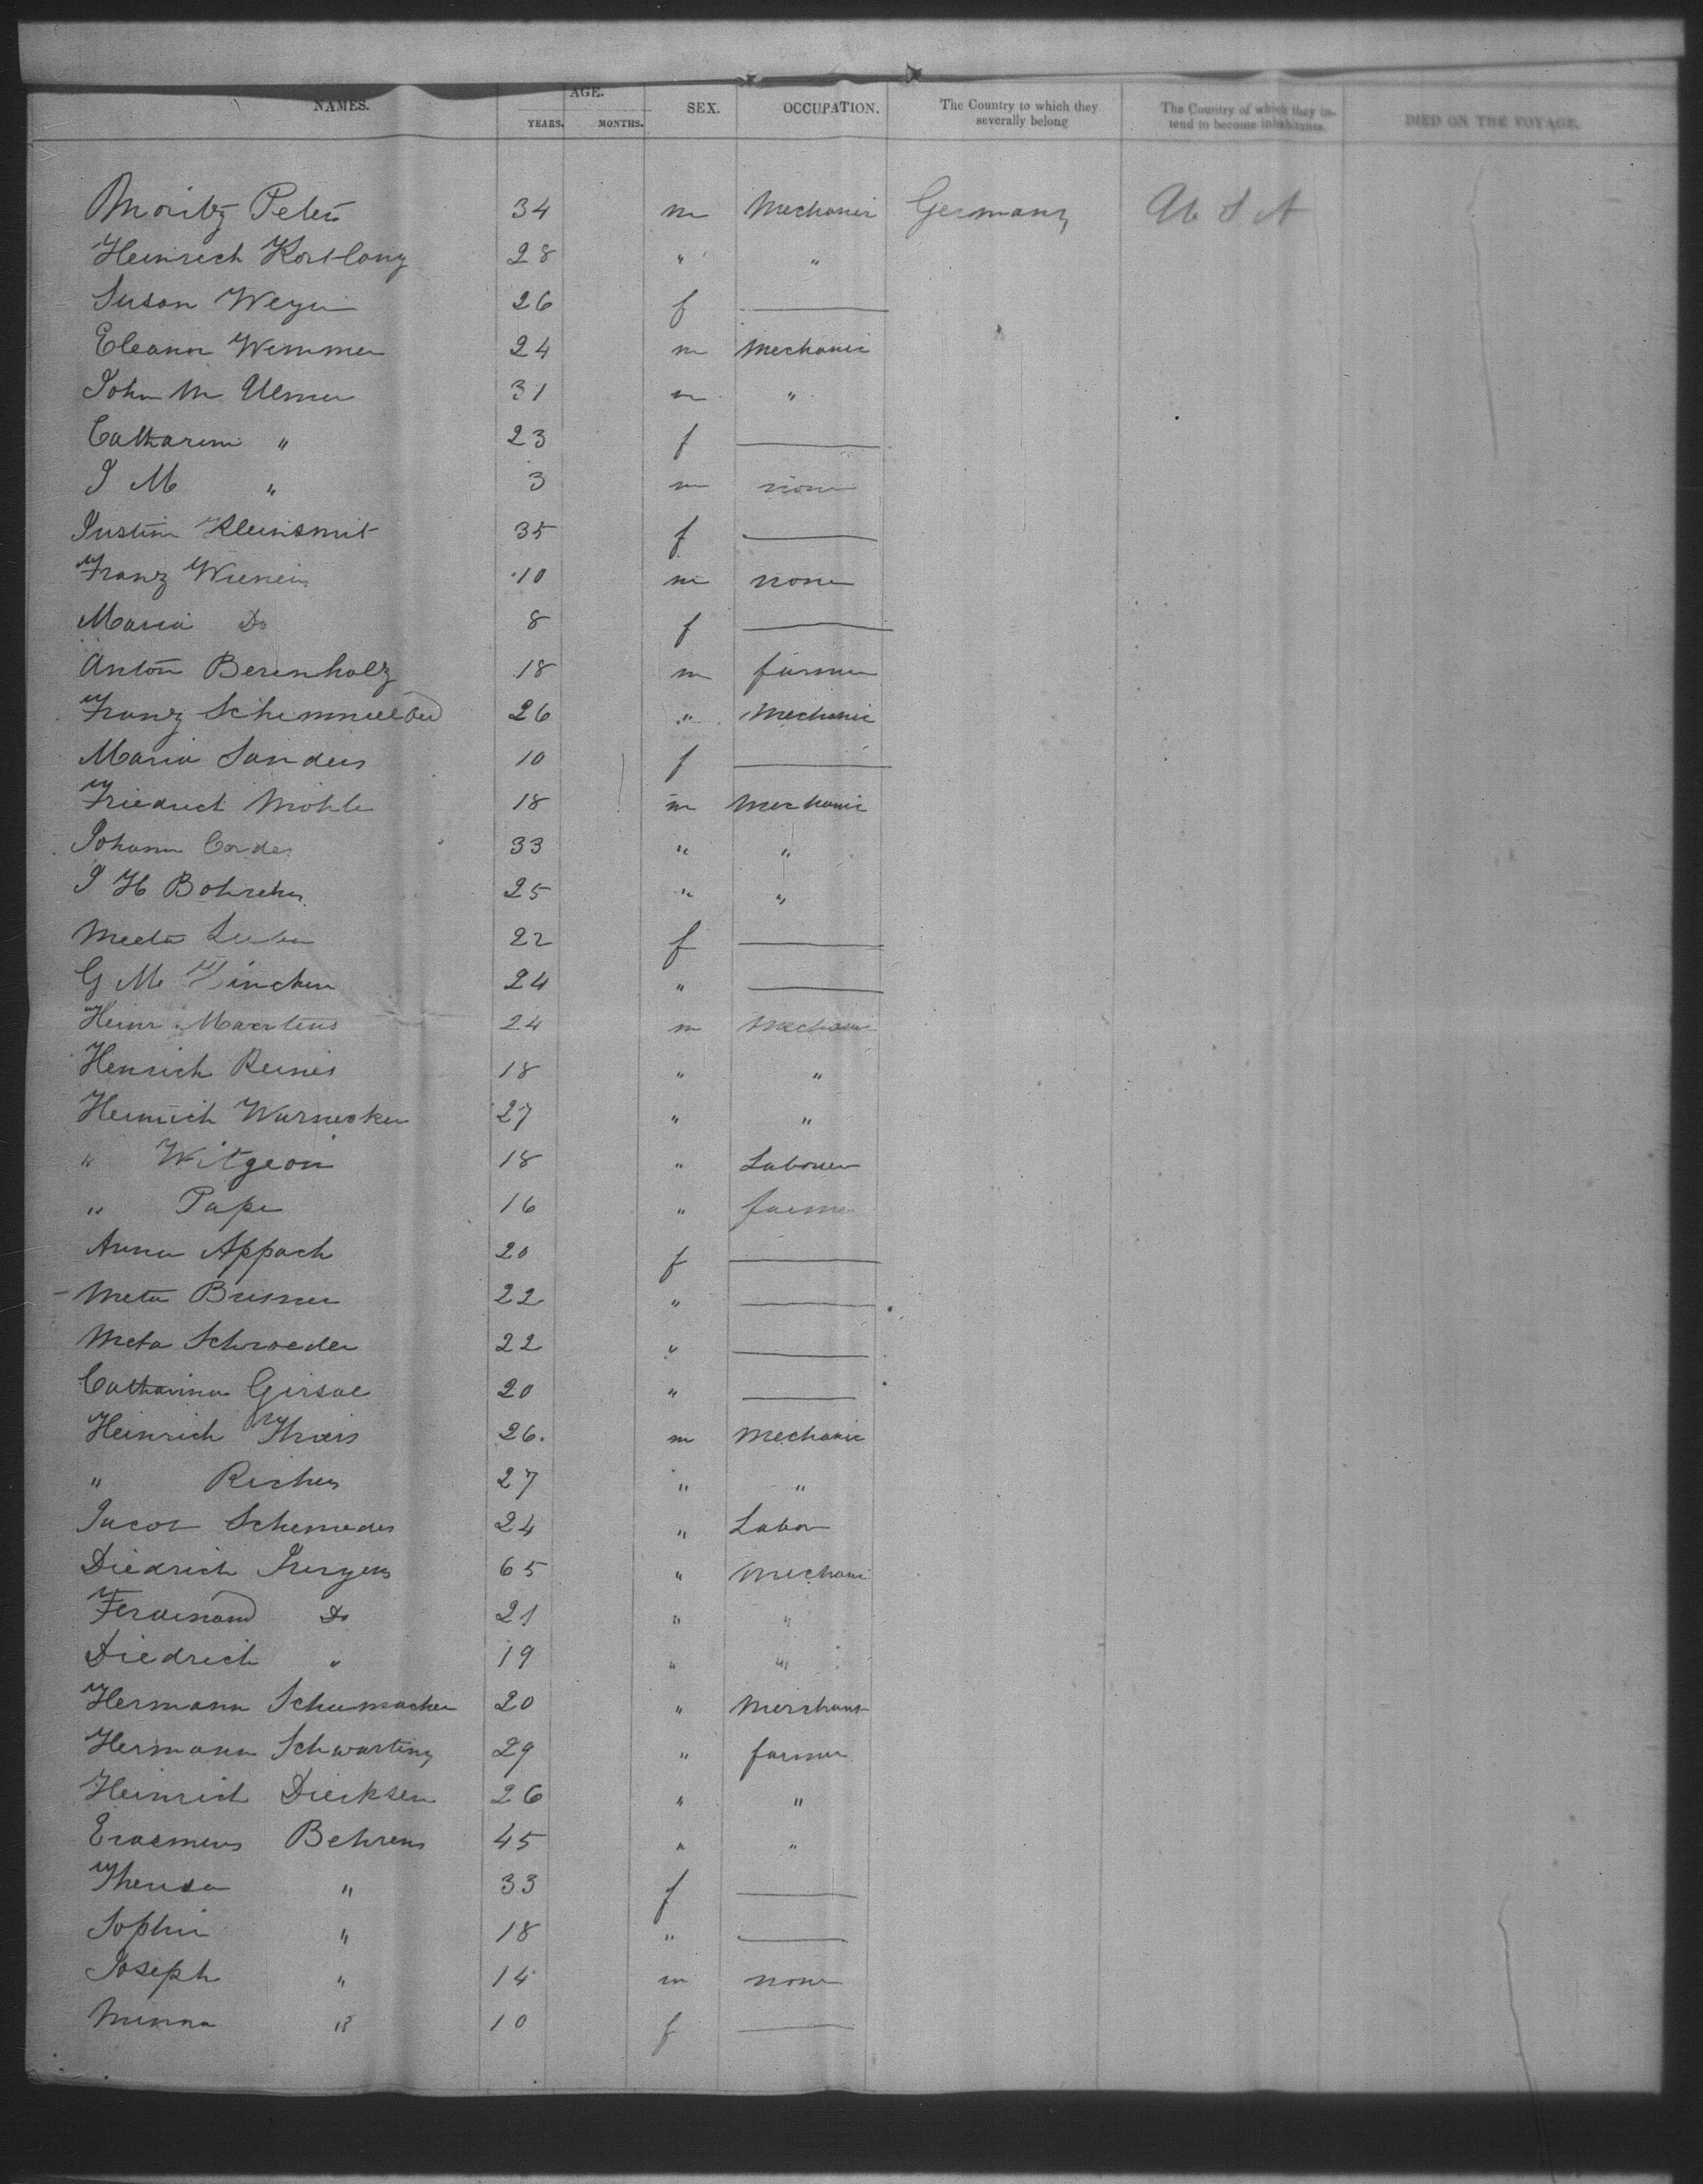 NAMES. AGE. SEX. OCCUPATION. The Country to which they severally belong The Country of which they intend to become inhabitants. DIED ON THE VOYAGE.
YEARS. MONTHS.
Moritz Peters 34 m Mechanic Germany U S A
Heinrich Kortlang 28 " "
Susan Weyer 26 f —
Eleanor Wemmer 24 m Mechanic
John M Ulmer 31 m "
Catharine " 23 f —
J M " 3 m none
Justine Kleinsmit 35 f —
Franz Wiener 10 m none
Maria Do 8 f —
Anton Berenholz 18 m farmer
Franz 26 " Mechanic
Maria Sanders 10 f —
Friedrich Mohle 18 m Mechanic
Johann Cordes 33 " "
J H 25 " "
Meeta 22 f —
G M Fincken 24 " —
Heinr. Maertens 24 m Mechanic
Henrich Reiners 18 " "
Heinrich Warnecken 27 " "
" Witgeon 18 " Labourer
" Pape 16 " farmer
Anna Appach 20 f —
Meta 22 " —
Meta Schroeder 22 " —
Catharina 20 " —
Heinrich 26. m Mechanic
" Richers 27 " "
Jacob 24 " Labor
Diedrich Juergens 65 " Mechani
Ferdinand Do 21 " "
Diedrich " 19 " "
Hermann Schumacher 20 " Merchant
Hermann Schwarting 29 " farmer
Heinrich Dierksen 26 " "
Erasmus Behrens 45 " "
Theresa " 33 f —
Sophie " 18 " —
Joseph " 14 m none
Minna " 10 f —